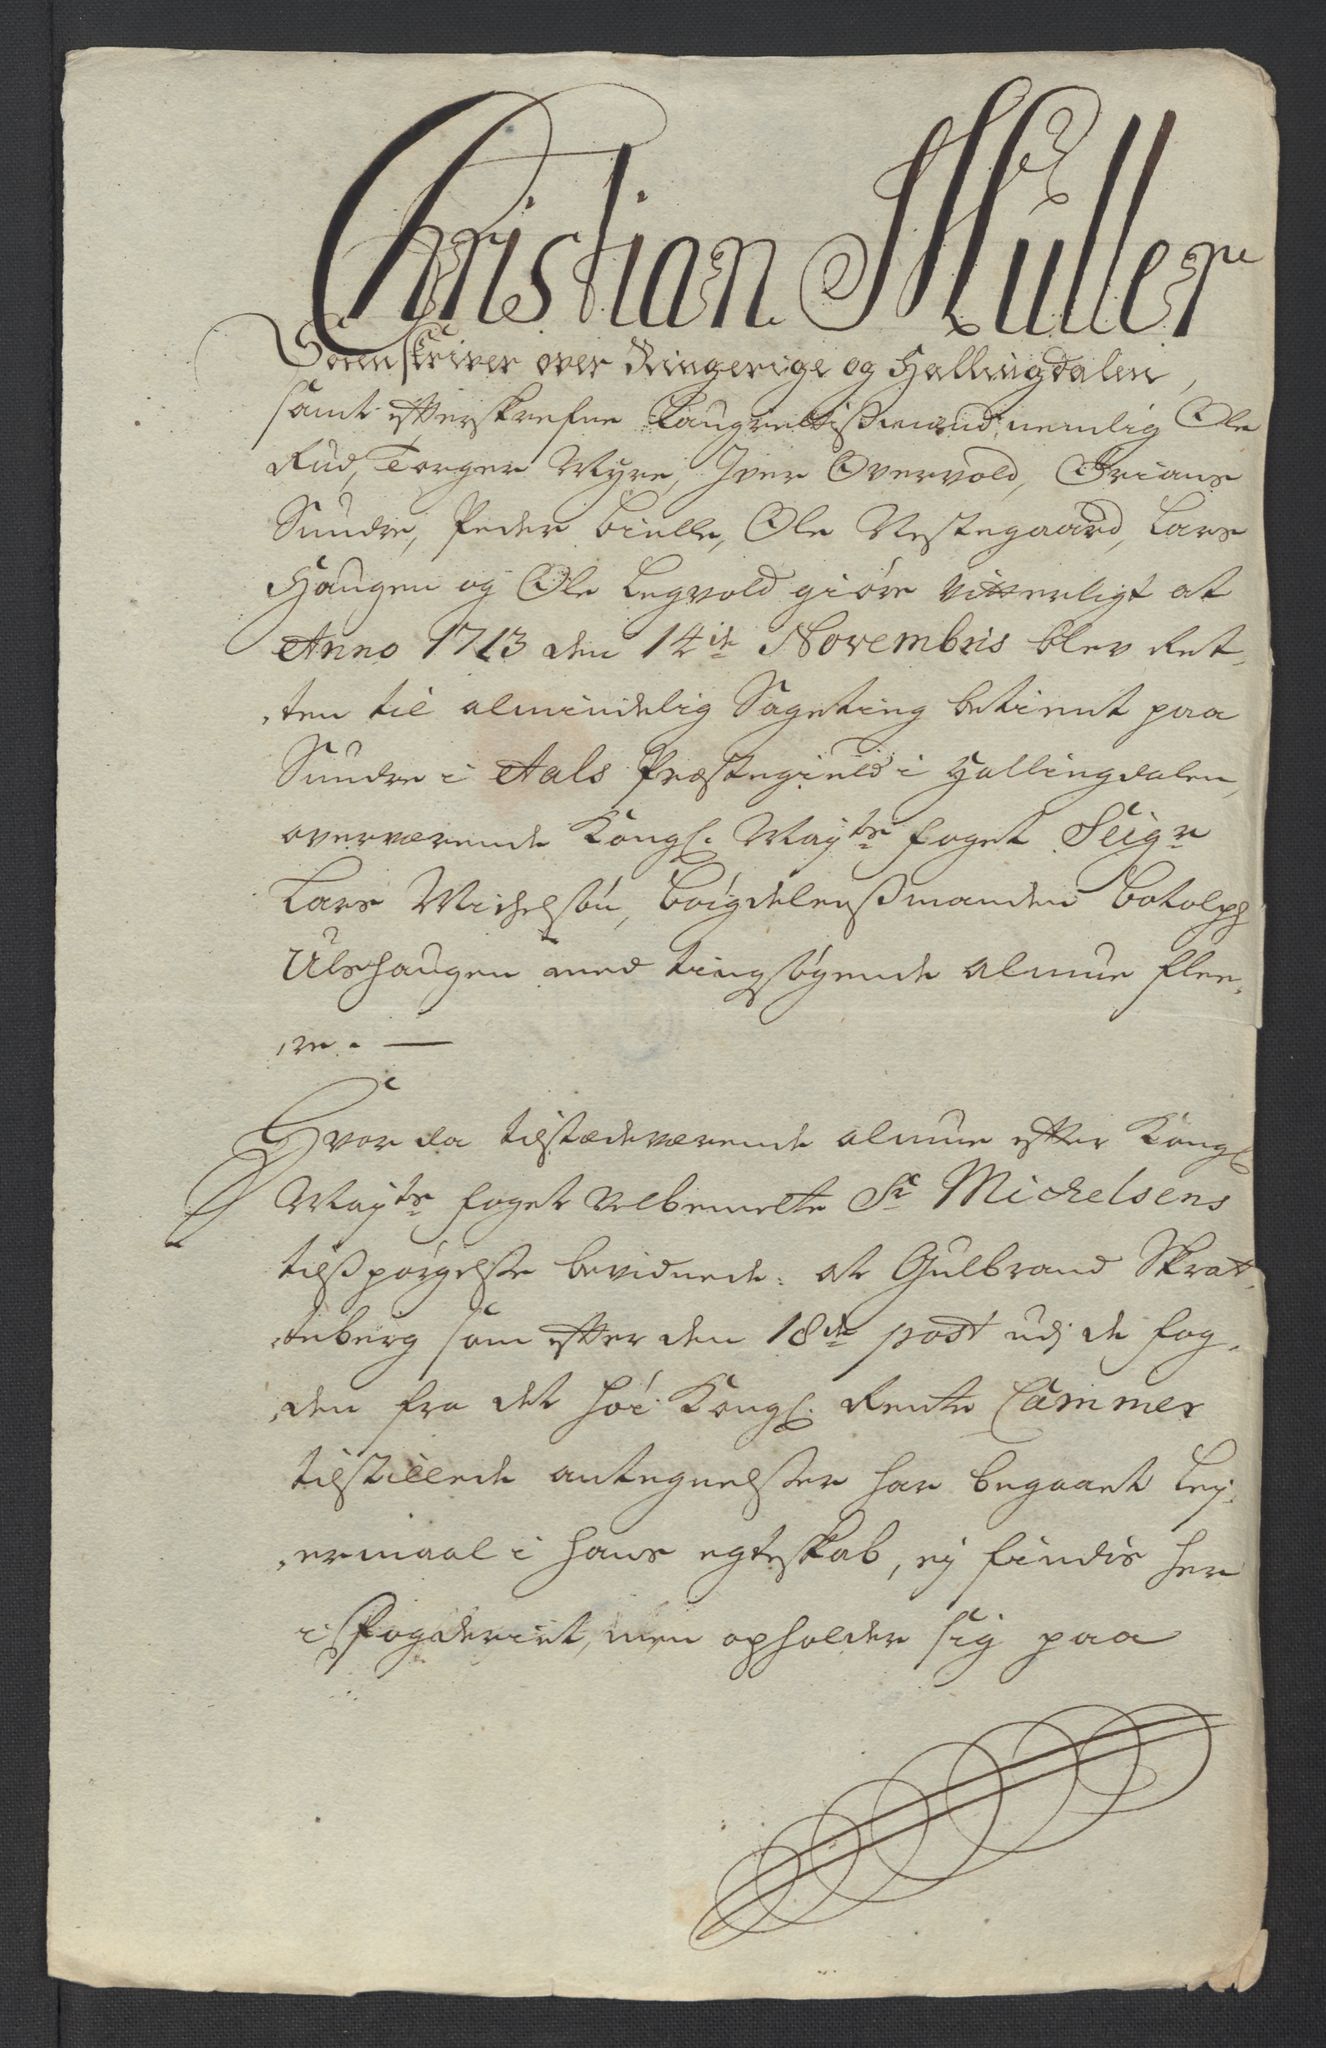 Christian Müller
Sorenskriver over Ringerige og Hallingdalen,
samt efterskrefne Laugrettismænd nemlig Ole
Rud, Torger Myre, Iver Overvold, Ørians
Sundre, Peder bielle, Ole Vestegaard, Lars
Haugen og Ole Legvold giøre Vitterligt at
Anno 1713 den 14de Novembris blev Ret-
ten til almindelig Sageting betient paa
Sundre i Aals Præstegield i Hallingdalen,
overværende Kongl. May.ts foget Seigr
Lars Michelsøn, bøigdelensmanden botolph
Ulshaugen med tingsøgende almue flee-
re. —
Hvor da tilstædeværende almue efter Kongl
May.ts foget velbemelte Sr Michelsens
tilspørgelse bevidnede. at Gulbrand Skrat-
teberg som efter den 18de post udj de fog-
den fra det høi Kongl. Rente Cammer
tilstillede antegnelser har begaaet Ley-
ermaal i hans egteskab, ej findis her
i fogderiet, men opholder sig paa